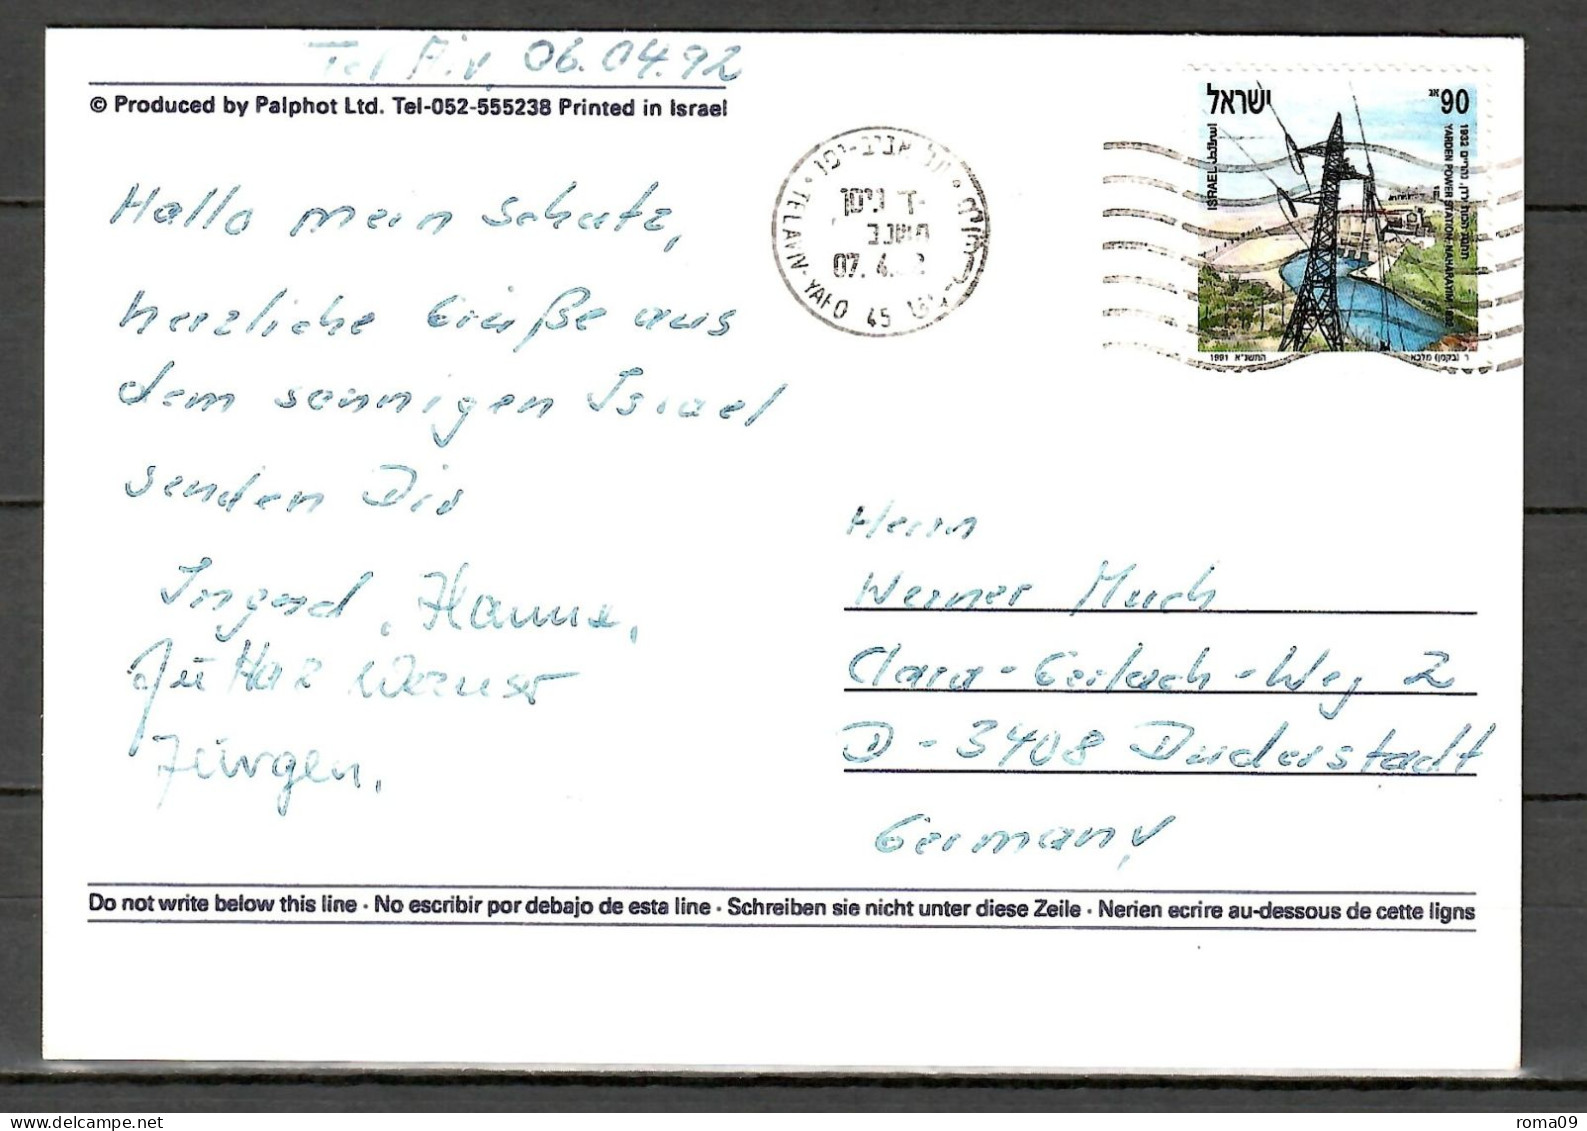 Tel Aiv, 06.04.92
© Produced by Palphot Ltd. Tel-052-555238 Printed in Israel
Hallo mein Schatz,
herzliche Grüße aus
dem sonnigen Israel
senden Dir
Irngard, Hanne,
Werner
Jürgen,
תל אביב-יפו
ד' ניסן
תשנב
07.4. 2
TEL AVIV-YAFO 45
ישראל
90 אג
اسرائيل
ISRAEL
YARDEN POWER STATION, NAHARAYIM, 1932
1991 התשנ"א
ר. (בקמן) מלכא
Herrn
Werner Much
Clara-Gerlach-Weg 2
D-3408 Duderstadt
Germany
Do not write below this line · No escribir por debajo de esta line · Schreiben sie nicht unter diese Zeile · Nerien ecrire au-dessous de cette ligns
roma09